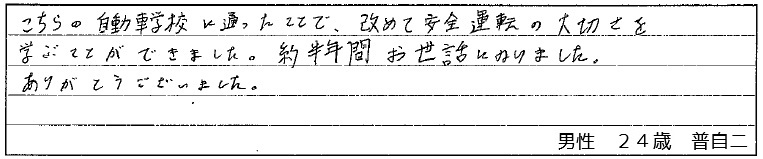 こちらの自動車学校に通ったことで、改めて安全運転の大切さを
学ぶことができました。約半年間お世話になりました。
ありがとうございました。
男性　２４歳　普自二